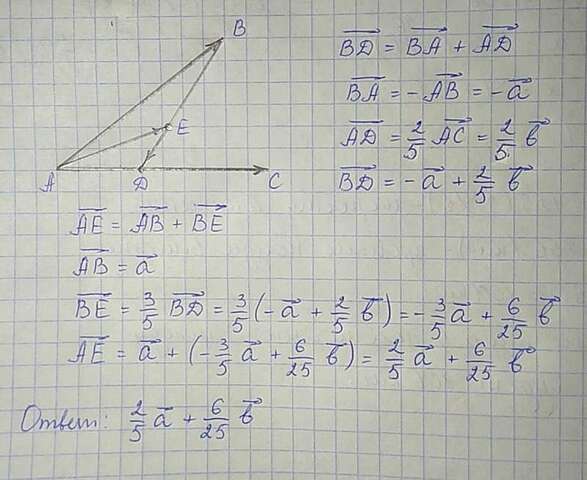 B
E
A
D
C
B⃗D⃗ = B⃗A⃗ + A⃗D⃗
B⃗A⃗ = -A⃗B⃗ = -a⃗
A⃗D⃗ = 2/5 A⃗C⃗ = 2/5 b⃗
B⃗D⃗ = -a⃗ + 2/5 b⃗
A⃗E⃗ = A⃗B⃗ + B⃗E⃗
A⃗B⃗ = a⃗
B⃗E⃗ = 3/5 B⃗D⃗ = 3/5 (-a⃗ + 2/5 b⃗) = -3/5 a⃗ + 6/25 b⃗
A⃗E⃗ = a⃗ + (-3/5 a⃗ + 6/25 b⃗) = 2/5 a⃗ + 6/25 b⃗
Ответ: 2/5 a⃗ + 6/25 b⃗